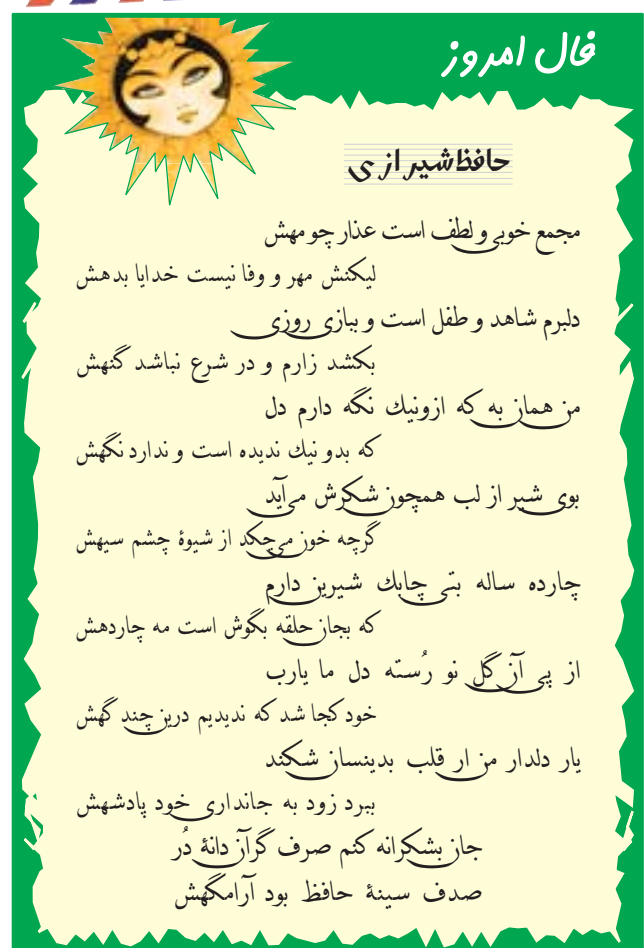 فال امروز
حافظ شیرازی
مجمع خوبی و لطف است عذار چو مهش
لیکنش مهر و وفا نیست خدایا بدهش
دلبرم شاهد و طفل است و ببازی روزی
بکشد زارم و در شرع نباشد گنهش
من همان به که ازو نیك نگه دارم دل
که بد و نیك ندیده است و ندارد نگهش
بوی شیر از لب همچون شکرش می‌آید
گرچه خون می‌چکد از شیوهٔ چشم سیهش
چارده ساله بتی چابك شیرین دارم
که بجان حلقه بگوش است مه چاردهش
از پی آن گل نو رُسته دل ما یارب
خود کجا شد که ندیدیم درین چند گهش
یار دلدار من ار قلب بدینسان شکند
ببرد زود به جانداری خود پادشهش
جان بشکرانه کنم صرف گر آن دانهٔ دُر
صدف سینهٔ حافظ بود آرامگهش